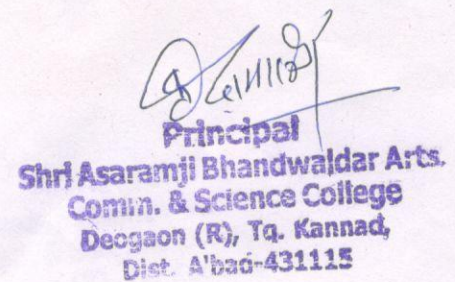 Principal
Shri Asaramji Bhandwaldar Arts.
Comm. & Science College
Deogaon (R), Tq. Kannad,
Dist. A'bad-431115